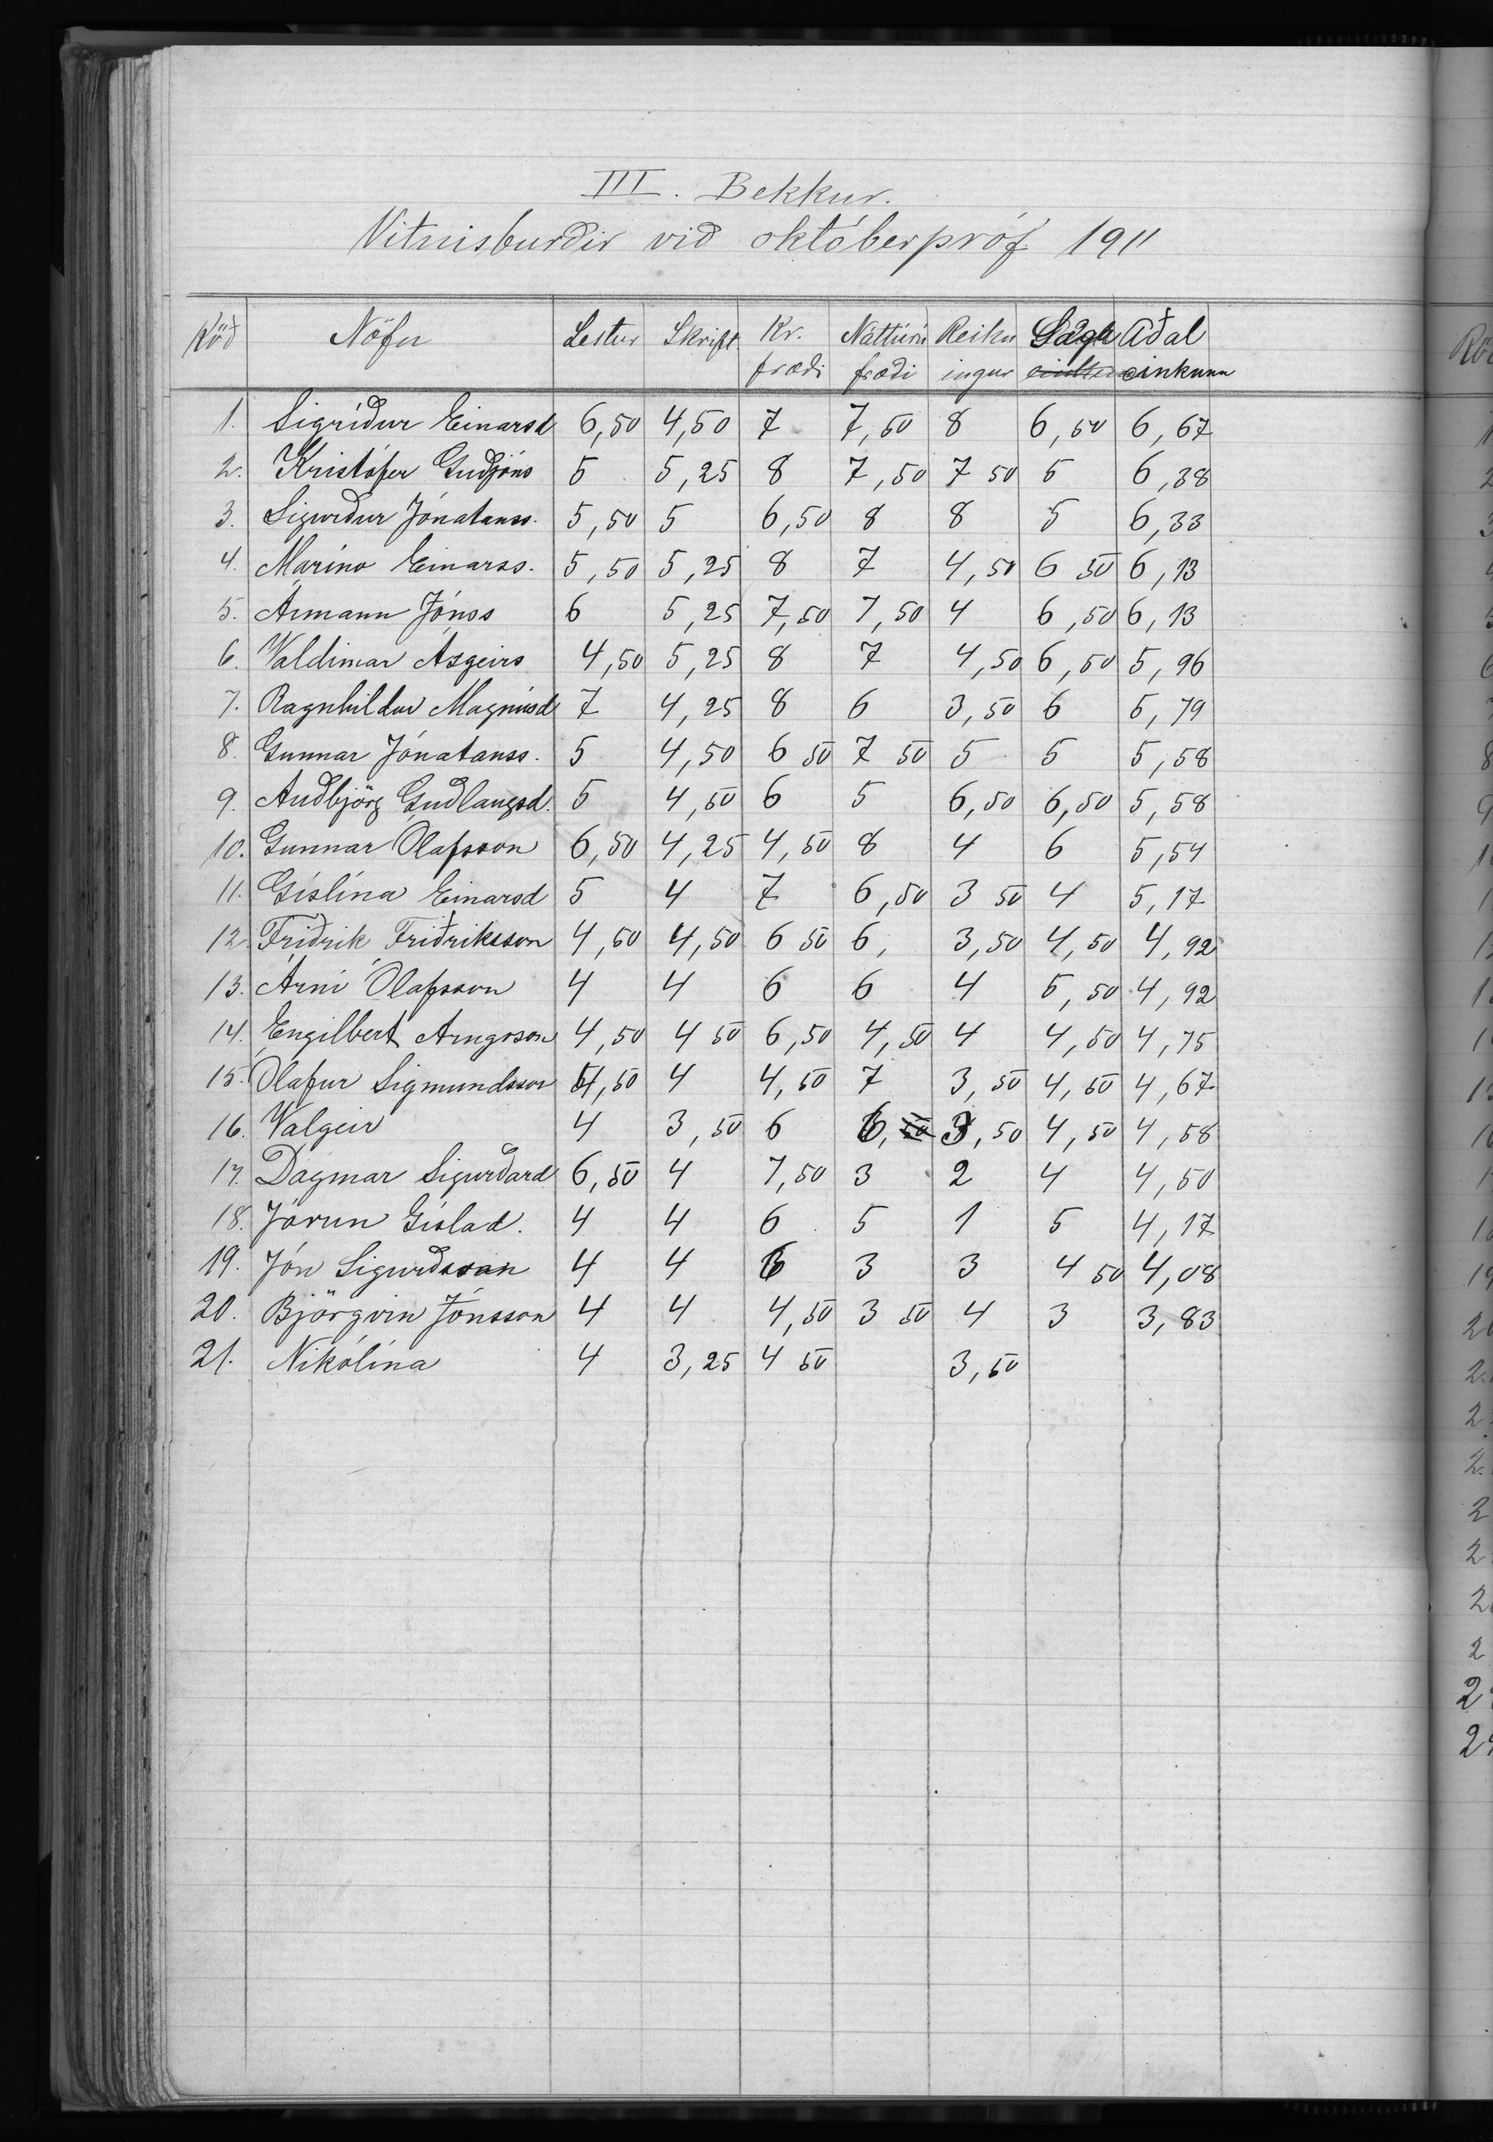 III. Bekkur.
Vitnisburðir við októberpróf 1911
Röð Nöfn Lestur Skrift. Kr. fræði Náttúru fræði Reikn ingur Saga Aðal einkunn
1. Sigríður Einarsd 6,50 4,50 7 7,50 8 6,50 6,67
2. Kristófer Guðjóns 5 5,25 8 7,50 7 50 5 6,38
3. Sigurður Jónatanss. 5,50 5 6,50 8 8 5 6,33
4. Marino Einarss. 5,50 5,25 8 7 4,50 6 50 6,13
5. Ármann Jónss 6 5,25 7,50 7,50 4 6,50 6,13
6. Valdimar Ásgeirs 4,50 5,25 8 7 4,50 6,50 5,96
7. Ragnhildur Magnúsd 7 4,25 8 6 3,50 6 5,79
8. Gunnar Jónatanss. 5 4,50 6 50 7 50 5 5 5,58
9. Auðbjörg Guðlaugsd. 5 4,50 6 5 6,50 6,50 5,58
10. Gunnar Ólafsson 6,50 4,25 4,50 8 4 6 5,54
11. Gíslína Einarsd 5 4 7 6,50 3 50 4 5,17
12. Friðrik Friðriksson 4,50 4,50 6 50 6, 3,50 4,50 4,92
13. Árni Ólafsson 4 4 6 6 4 5,50 4,92
14. Engilbert Arngrson 4,50 4 50 6,50 4,50 4 4,50 4,75
15. Ólafur Sigmundsson 4,50 4 4,50 7 3,50 4,50 4,67
16. Valgeir 4 3,50 6 6, 3,50 4,50 4,58
17. Dagmar Sigurðard 6,50 4 7,50 3 2 4 4,50
18. Jórun Gíslad. 4 4 6 5 1 5 4,17
19. Jón Sigurðsson 4 4 6 3 3 4 50 4,08
20. Björgvin Jónsson 4 4 4,50 3 50 4 3 3,83
21. Nikólína 4 3,25 4 50 3,50